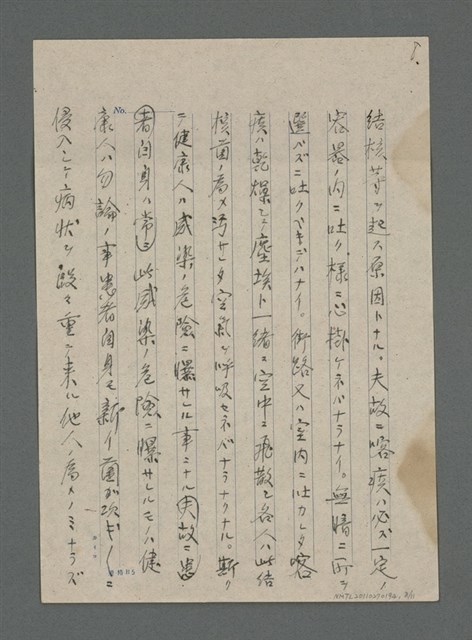 8.
結核等ヲ起ス原因トナル。夫故ニ喀痰ハ必ズ一定ノ
容器ノ内ニ吐ク様ニ心掛ケネバナラナイ。無暗ニ所ヲ
選バズニ吐クベキデハナイ。街路又ハ室内ニ吐カレタ喀
痰ハ乾燥シテ塵埃ト一緒ニ空中ニ飛散シ各人ハ此結
核菌ノ為メ汚サレタ空気ヲ呼吸セネバナラナクナル。斯ク
シテ健康人ハ感染ノ危険ニ曝サレル事ニナル夫故ニ患
者自身ハ常ニ此感染ノ危険ニ曝サレルモノハ健
康人ハ勿論ノ事患者自身モ新イ菌ガ次ギノニ
侵入シテ病状ヲ段々重ニ来ル他人ノ為メノミナラズ
No.
NMTL20110270196, 8/11